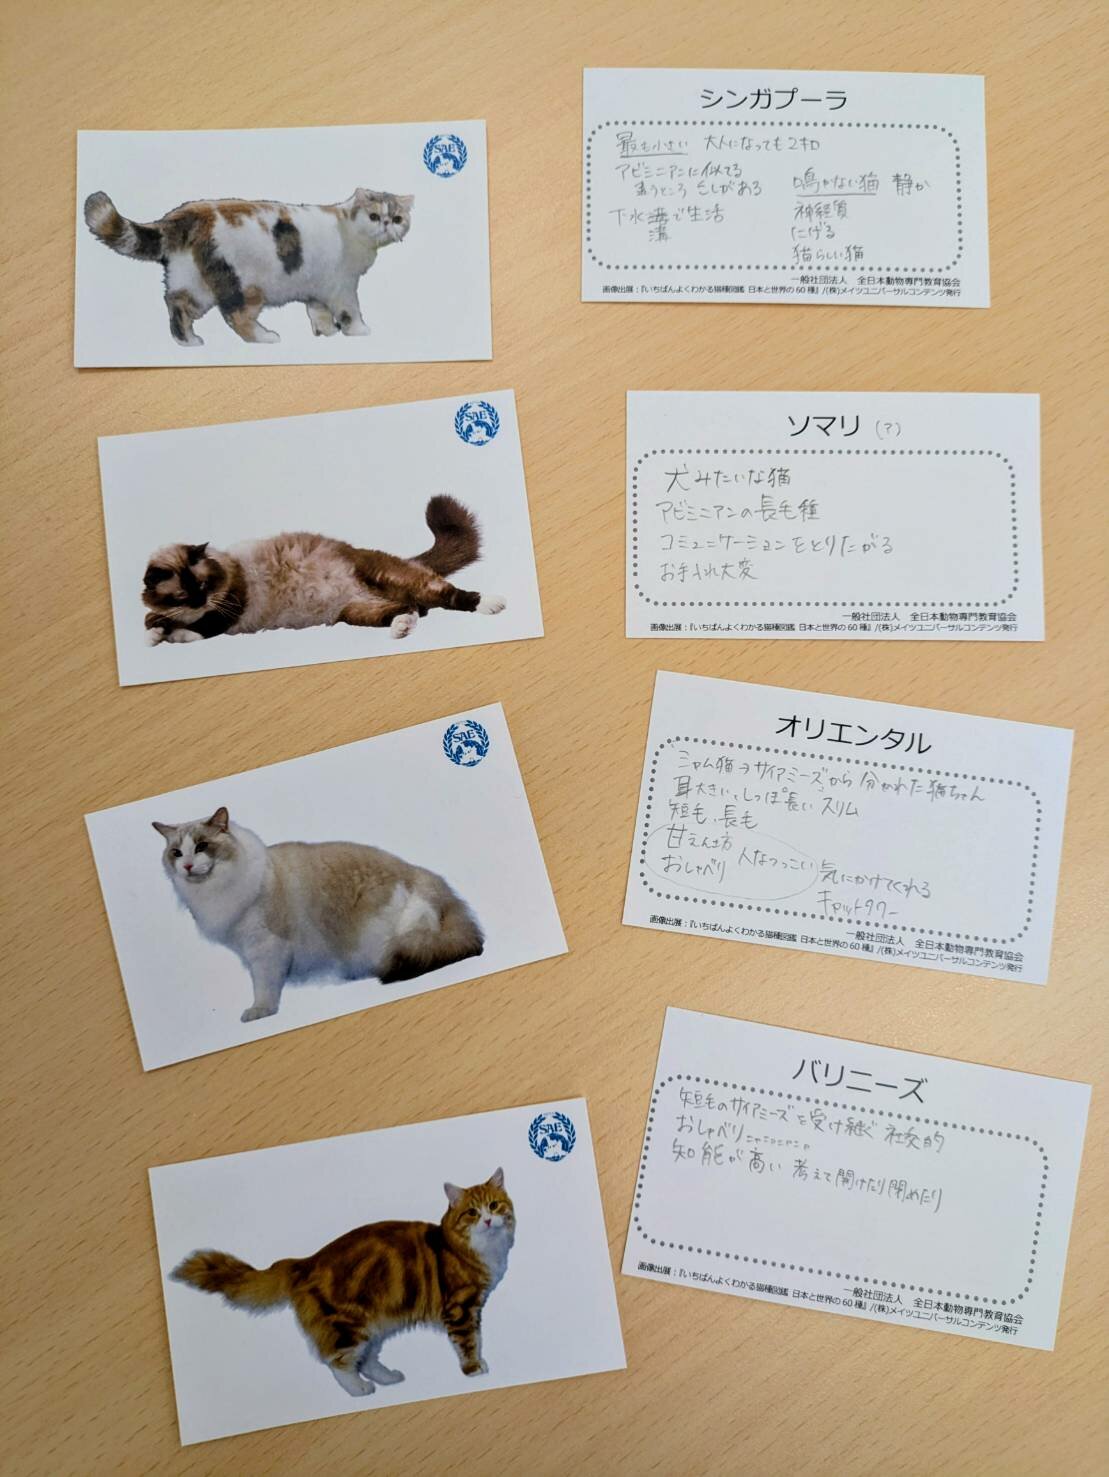 SAE
シンガプーラ
最も小さい 大人になっても2キロ
アビミニアンに似てる
違うところ えしがある
鳴かない猫 静か
下水溝で生活
溝
神経質
にげる
猫らしい猫
一般社団法人 全日本動物専門教育協会
画像出展：『いちばんよくわかる猫種図鑑 日本と世界の60種』/(株)メイツユニバーサルコンテンツ発行
SAE
ソマリ (?)
犬みたいな猫
アビミニアンの長毛種
コミュニケーションをとりたがる
お手入れ大変
一般社団法人 全日本動物専門教育協会
画像出展：『いちばんよくわかる猫種図鑑 日本と世界の60種』/(株)メイツユニバーサルコンテンツ発行
SAE
オリエンタル
シャム猫→サイアミーズから分かれた猫ちゃん
耳大きい、しっぽ長い、スリム
短毛、長毛
甘えん坊
おしゃべり 人なつっこい 気にかけてくれる
キャットタワー
一般社団法人 全日本動物専門教育協会
画像出展：『いちばんよくわかる猫種図鑑 日本と世界の60種』/(株)メイツユニバーサルコンテンツ発行
SAE
バリニーズ
短毛のサイアミーズを受け継ぐ 社交的
おしゃべり ニャニャニャニャ
知能が高い 考えて開けたり閉めたり
一般社団法人 全日本動物専門教育協会
画像出展：『いちばんよくわかる猫種図鑑 日本と世界の60種』/(株)メイツユニバーサルコンテンツ発行